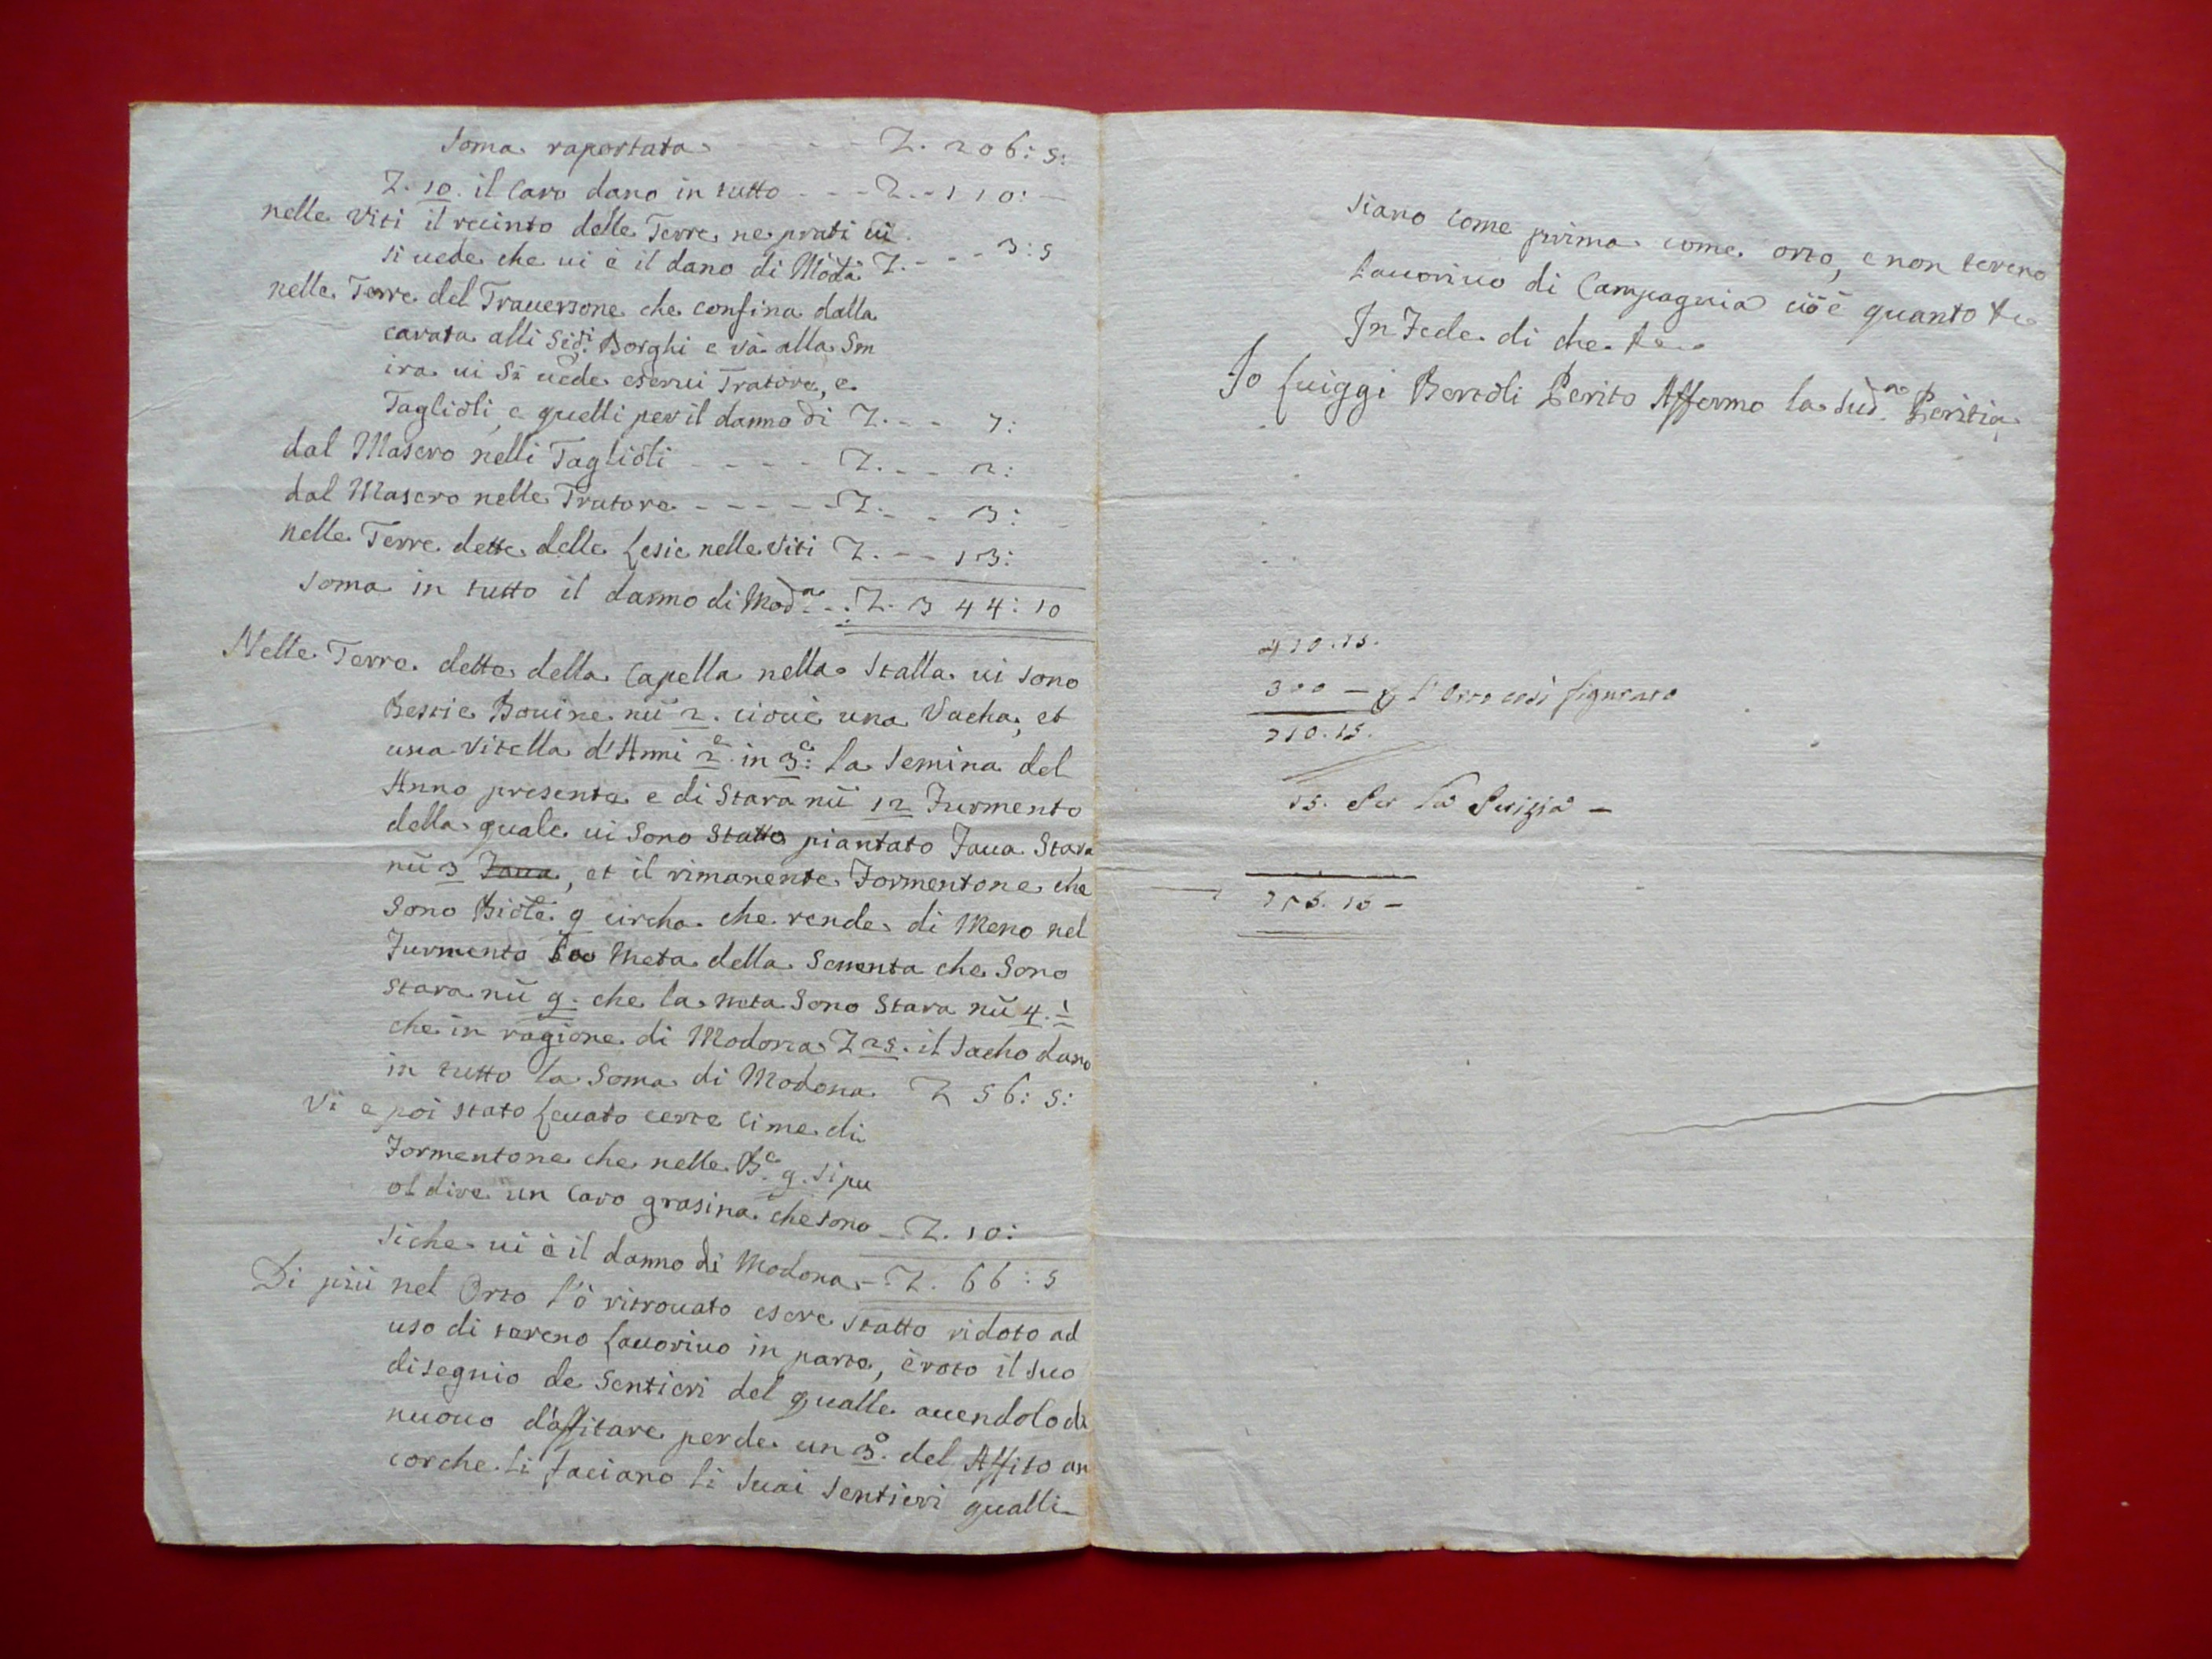 Soma raportata - - - - Z. 206: 5:
Z. 10. il Caro dano in tutto - - - Z. - 110: -
nelle Viti il recinto delle Terre, ne prati ui
si uede che ui è il dano di Moda Z. - - - 3: 5
nelle Terre del Trauersone che confina dalla
cavata alli Sigi. Borghi e và alla Sm
ira ui Si uede eserui Tratore, e
Taglioli, e quelli per il danno di Z. - - 7:
dal Masero nelli Taglioli - - - - Z. - - 2:
dal Masero nelle Tratore - - - - - Z. - - 3:
nelle Terre dette delle Lesie nelle Viti Z. - - 13:
Soma in tutto il danno di Moda. - . Z. 344: 10
Nelle Terre dette della Capella nella Stalla ui sono
Bestie Bouine nũ 2. cioué una Vacha, et
una Vitella d'Anni 2 in 3: la Semina del
Anno presente e di Stara nũ 12 Furmento
della quale ui Sono Statto piantato Faua Stara
nũ 3 Faua, et il rimanente Formentone che
Sono Biole 9 circha che rende di Meno nel
Furmento la Meta della Sementa che Sono
Stara nũ 9. che la meta Sono Stara nũ 4. ½
che in ragione di Modona Z 25. il Sacho dano
in tutto la Soma di Modona Z 56: 5:
Vi e poi stato Leuato certe Cime di
Formentone che nelle Be. 9. si pu
ol dire un Caro grasina che sono - Z. 10:
Siche ui è il danno di Modona - Z. 66: 5
Di più nel Orto l'ò ritrouato esere statto ridoto ad
uso di tareno Lauoriuo in parte, è roto il suo
disegnio de Sentieri del qualle auendolo di
nuouo d'affitare perde un 3o. del Affito an
corche li faciano li Suai Sentieri qualli
siano come prima come orto, e non tereno
Lauoriuo di Campagnia cioè quanto
In Fede di che
Io Luiggi Bertoli Perito Affermo la Suda. Peritia
410.15.
300 - l'Orto così figurato
710.15.
15. Per la Perizia -
10 -